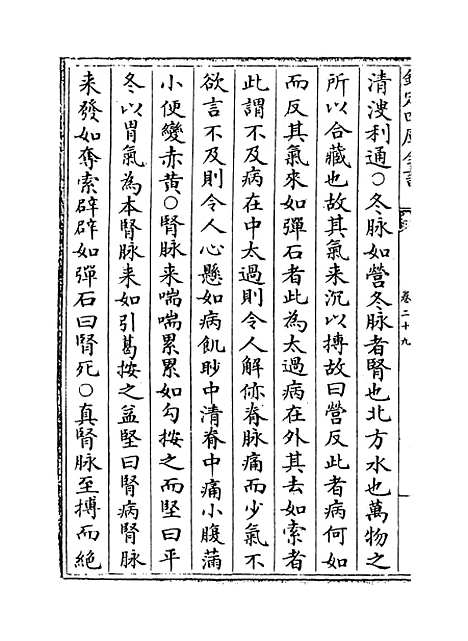 欽定四庫全書
卷二十九
清溲利通○冬脉如營冬脉者腎也北方水也萬物之
所以合藏也故其氣来沉以搏故曰營反此者病何如
而反其氣來如彈石者此為太過病在外其去如索者
此謂不及病在中太過則令人解㑊脊脉痛而少氣不
欲言不及則令人心懸如病飢䏚中清脊中痛小腹滿
小便變赤黄○腎脉来喘喘累累如勾按之而堅曰平
冬以胃氣為本腎脉来如引葛按之益堅曰腎病腎脉
来發如奪索辟辟如彈石曰腎死○真腎脉至搏而絶